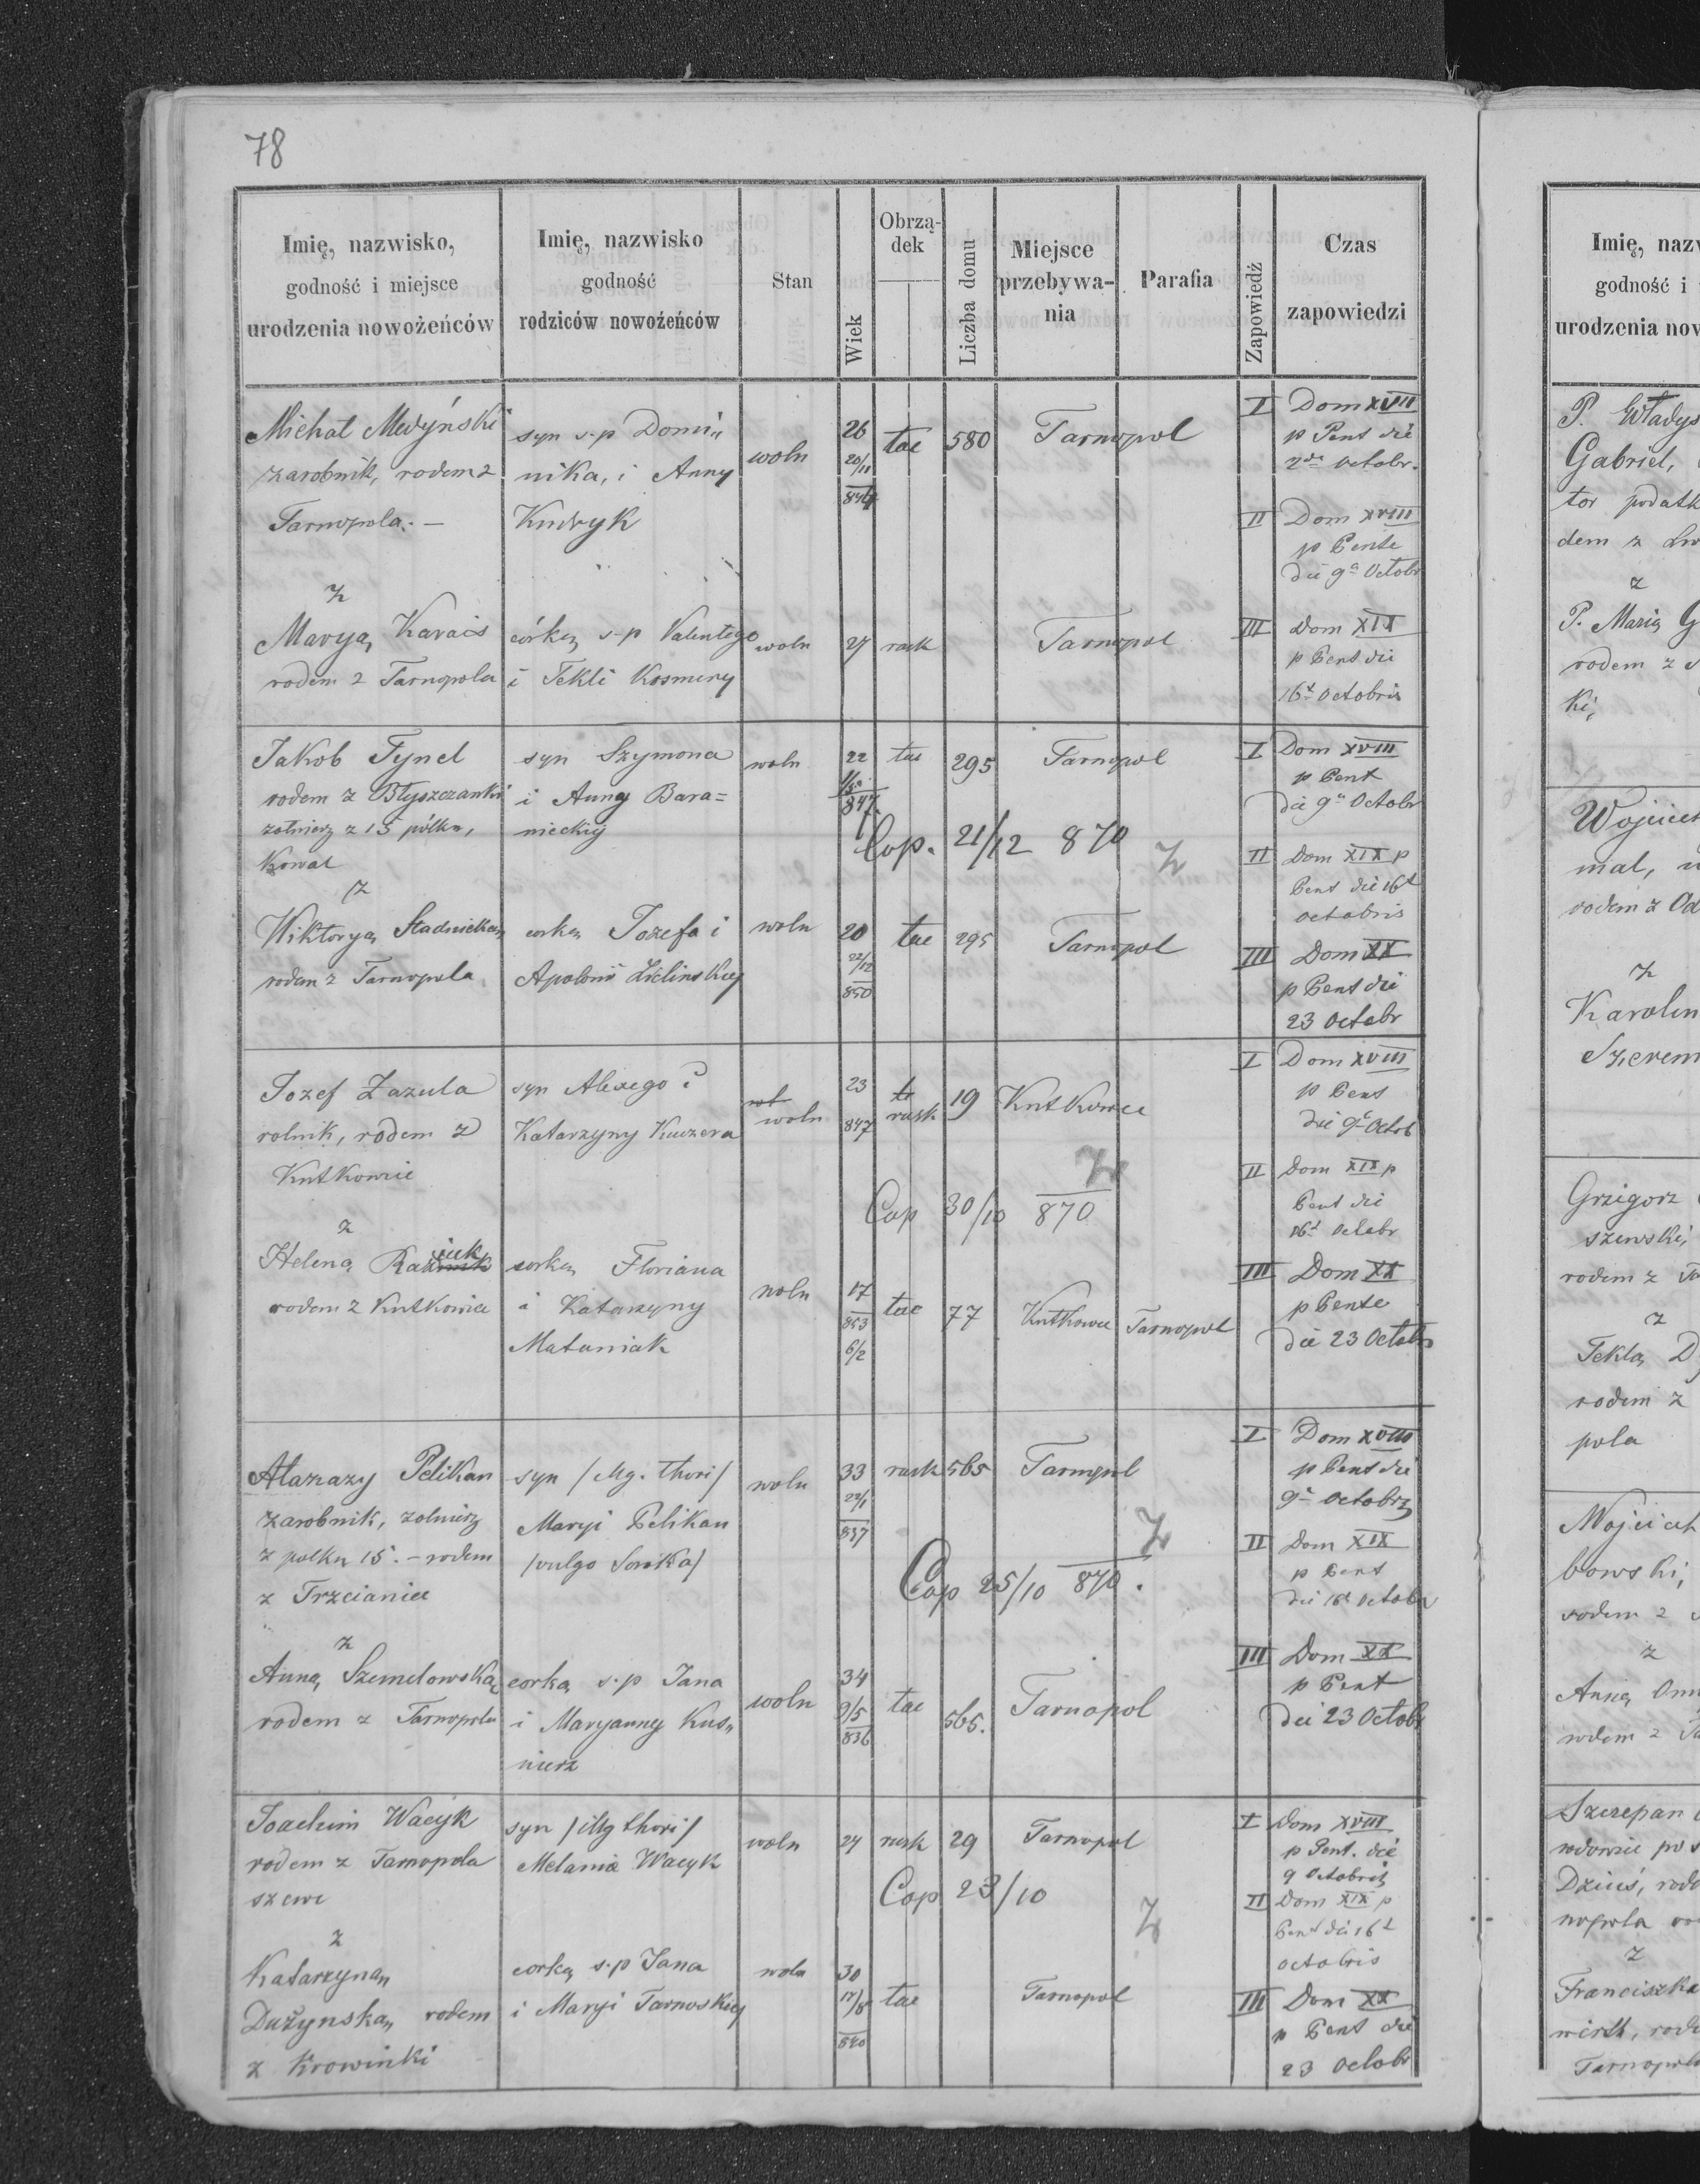 78
Imię, nazwisko,
godność i miejsce
urodzenia nowożeńców
Imię, nazwisko
godność
rodziców nowożeńców
Stan
Wiek
Obrzą-
dek
Liczba domu
Miejsce
przebywa-
nia
Parafia
Zapowiedź
Czas
zapowiedzi
Michał Medyński
zarobnik, rodem z
Tarnopola. —
syn s.p Domi„
nika, i Anny
Kudryk
woln
26
20/11
844
łac
580
Tarnopol
I Dom XVII
p Pent die
2da Octobr.
II Dom XVIII
p Pente
die 9a Octobr
z
Maryą Karais
rodem z Tarnopola
córką s-p Valentego
i Tekli Kosmery
woln
27
rusk
Tarnopol
III Dom XIX
p Pent die
16t Octobris
Jakob Tynel
rodem z Błyszczanki
żołnierz z 15 półku,
Kowal
syn Szymona
i Anny Bara=
nieckiy
woln
22
847
łac
295
Tarnopol
Cop. 21/12 870
I Dom XVIII
p Pent
die 9a Octobr
II Dom XIX p
Pent die 16t
octobris
z
Wiktoryą Stadnicką
rodem z Tarnopola
corką Jozefa i
Apolonii Zielinskiey
woln
20
22/12
850
łac
295
Tarnopol
III Dom XX
p Pent die
23 Octobr
Jozef Zazula
rolnik, rodem z
Kutkowiec
syn Alexego i
Katarzyny Kuczera
woln
23
847
rusk
19
Kutkowce
Cop 30/10 870
I Dom XVIII
p Pent
die 9a Octob
II Dom XIX p
Pent die
16t Octobr
z
Heleną
rodem z Kutkowiec
corką Floriana
i Katarzyny
Mataniak
woln
17
853
6/2
łac
77
Kutkowce
Tarnopol
III Dom XX
p Pente
die 23 Octobr
Atanazy Pelikan
zarobnik, zolnierz
z polku 15. – rodem
z Trzcianiec
syn /Mg. thori/
Maryi Pelikan
/vulgo
woln
33
22/1
837
rusk
565
Tarnopol
Cop 25/10 870.
I Dom XVIII
p Pent die
9a octobr
II Dom XIX
p Pent
die 16t Octobr
z
Anną Szemelowską
rodem z Tarnopola
corka s.p Jana
i Maryanny Kus„
nierz
woln
34
9/5
836
łac
565.
Tarnopol
III Dom XX
p Pent
die 23 Octobr
Joachim Wacyk
rodem z Tarnopola
szewc
syn /illg thori/
Melania Wacyk
woln
24
rusk
29
Tarnopol
Cop 23/10
I Dom XVIII
p Pent. die
9 Octobris
II Dom XIX p
Pent die 16t
octobris
z
Katarzyną
Dużynską rodem
z Krowinki
corką s.p Jana
i Maryi Tarnoskiey
woln
30
17/8
840
łac
Tarnopol
III Dom XX
p Pent die
23 Octobr
Imię, nazw
godność i
urodzenia now
P. Władys
Gabriel,
tor podatk
dem z Lw
z
P. Marią G
rodem z
ki,
Wojciech
mal,
rodem z Od
z
Karolin
Szerem
Grzegorz
szewski,
rodem z
z
Teklą D
rodem z
pola
Wojciech
bowski,
rodem z
z
Anną
rodem z
Szczepan
wdowiec po s
Dziuś, rod
nopola
z
Franciszka
wirth, rod
Tarnopol